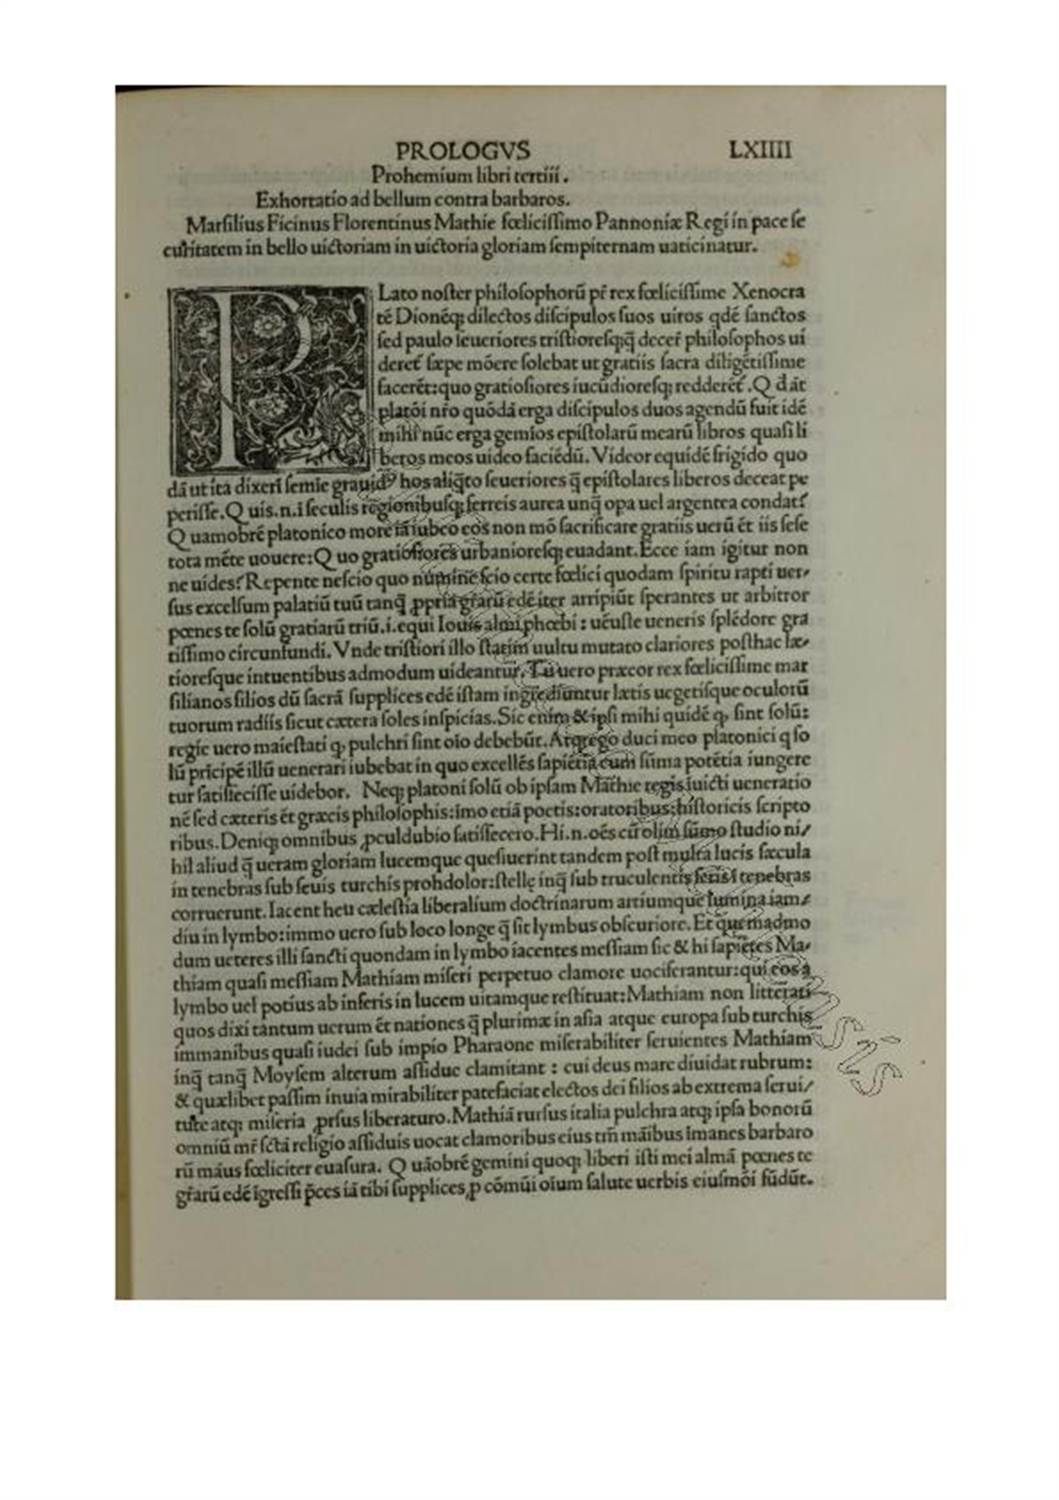 PROLOGVS LXIIII
Prohemium libri tertii.
Exhortatio ad bellum contra barbaros.
Marſilius Ficinus Florentinus Mathie fœliciſſimo Pannoniæ Regi in pace ſe
curitatem in bello uictoriam in uictoria gloriam ſempiternam uaticinatur.
PLato noſter philoſophorū pr̄ rex fœliciſſime Xenocra
tē Dionēqꝫ dilectos diſcipulos ſuos uiros qdē ſanctos
ſed paulo ſeueriores triſtioreſqꝫ q̄ decer& philoſophos ui
der& ſæpe mōere ſolebat ut gratiis ſacra diligētiſſime
facerēt: quo gratioſiores iucūdioreſqꝫ redderēt. Q d āt
platōi nr̄o quōdā erga diſcipulos duos agendū fuit idē
mihi nūc erga gemīos epiſtolarū mearū libros quaſi li
beros meos uideo faciēdū. Videor equidē frigido quo
dā ut ita dixerī ſemīe grauidꝰ hos aliq̄to ſeueriores q̄ epiſtolares liberos deceat pe
periſſe. Q uis. n. ī ſeculis regionibuſqꝫ ferreis aurea unq̄ opa uel argentea condat?
Q uamobrē platonico more iā iubeo eos non mō ſacrificare gratiis uerū ēt iis ſeſe
tota mēte uouere: Q uo gratioſiores urbanioreſqꝫ euadant. Ecce iam igitur non
ne uides? Repente neſcio quo numine ſcio certe fœlici quodam ſpiritu rapti uer/
ſus excelſum palatiū tuū tanq̄ ꝓpriā gr̄arū edē iter arripiūt ſperantes ut arbitror
pœnes te ſolū gratiarū triū. i. equi Iouis almi phœbi: uēuſte ueneris ſplēdore gra
tiſſimo circunfundi. Vnde triſtiori illo ſtatim uultu mutato clariores poſthac læ/
tioreſque intuentibus admodum uideantur. Tu uero præcor rex fœliciſſime mar
ſilianos filios dū ſacrā ſupplices edē iſtam ingrediuntur lætis uegetiſque oculorū
tuorum radiis ſicut cætera ſoles inſpicias. Sic enim & ipſi mihi quidē q, ſint ſolū:
regie uero maieſtati q, pulchri ſint oīo debebūt. Atqꝫ ego duci meo platonici q ſo
lū prīcipē illū uenerari iubebat in quo excellēs ſapiētia cum ſūma potētia iungere
tur ſatiſfeciſſe uidebor. Neqꝫ platoni ſolū ob ipſam Mathie regis īuicti ueneratio
nē ſed cæteris ēt græcis philoſophis: imo etiā poetis: oratoribus: hiſtoricis ſcripto
ribus. Deniqꝫ omnibus ꝓculdubio ſatiſfecero. Hi. n. oēs cū olim ſūmo ſtudio ni/
hil aliud q̄ ueram gloriam lucemque queſiuerint tandem poſt multa lucis ſæcula
in tenebras ſub ſeuis turchis prohdolor: ſtellę inq̄ ſub truculentis feris ī tenebras
corruerunt. Iacent heu cæleſtia liberalium doctrinarum artiumque lumina iam/
diu in lymbo: immo uero ſub loco longe q̄ ſit lymbus obſcuriore. Et quemadmo
dum ueteres illi ſancti quondam in lymbo iacentes meſſiam ſic & hi ſapiētes Ma/
thiam quaſi meſſiam Mathiam miſeri perpetuo clamore uociferantur: qui eos a
lymbo uel potius ab inferis in lucem uitamque reſtituat: Mathiam non litterati
quos dixi tantum uerum ēt nationes q̄ plurimæ in aſia atque europa ſub turchis
immanibus quaſi iudei ſub impio Pharaone miſerabiliter ſeruientes Mathiam
inq̄ tanq̄ Moyſem alterum aſſidue clamitant: cui deus mare diuidat rubrum:
& quælibet paſſim inuia mirabiliter patefaciat electos dei filios ab extrema ſerui/
tute atqꝫ miſeria ꝓrſus liberaturo. Mathiā rurſus italia pulchra atqꝫ ipſa bonorū
omniū mr̄ ſctā religio aſſiduis uocat clamoribus eius tm̄ māibus īmanes barbaro
rū māus fœliciter euaſura. Q uāobrē gemini quoqꝫ liberi iſti mei almā pœnes te
gr̄arū edē īgreſſi p̄ces iā tibi ſupplices ꝓ cōmūi oīum ſalute uerbis eiuſmōi fūdūt.